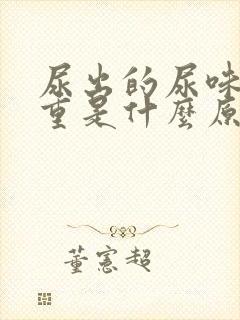 尿出的尿味
重是什麼原
董憲超